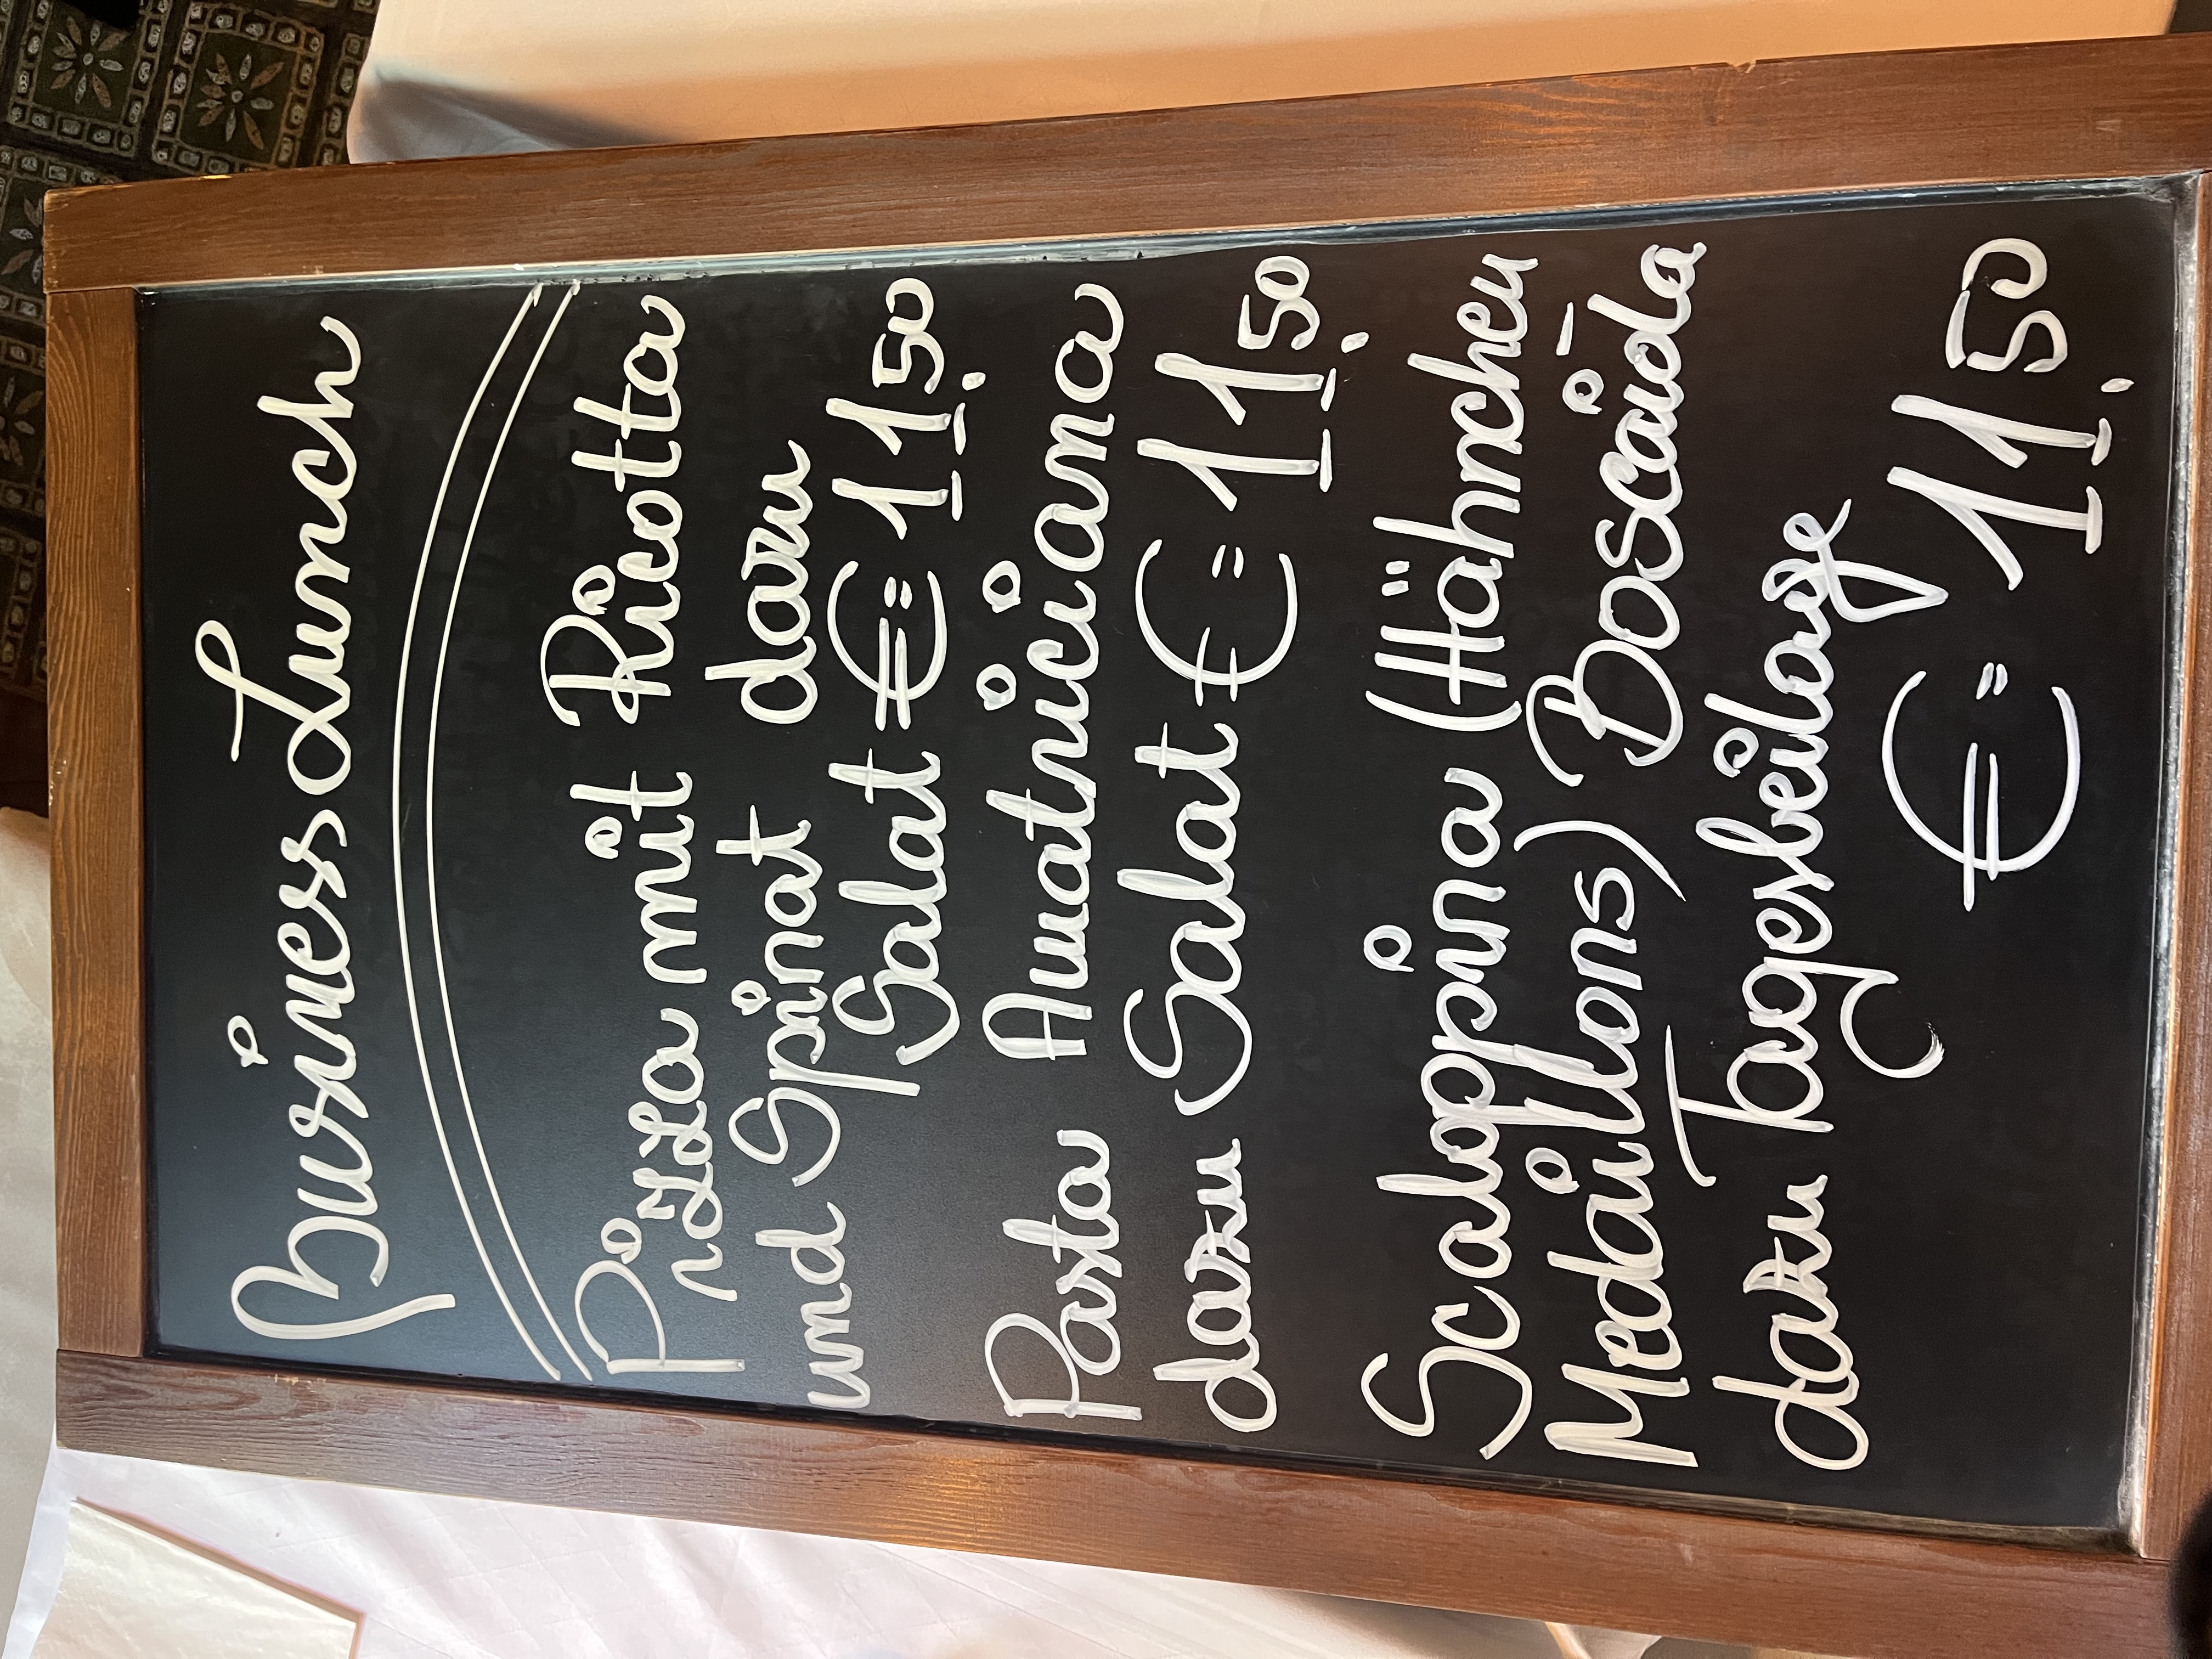 Business Lunch
Pizza mit Ricotta
und Spinat dazu
Salat €= 11.50
Pasta Amatriciana
dazu Salat €= 11.50
Scaloppina (Hähnchen
Medaillons) Boscaiola
dazu Tagesbeilage
€= 11.50